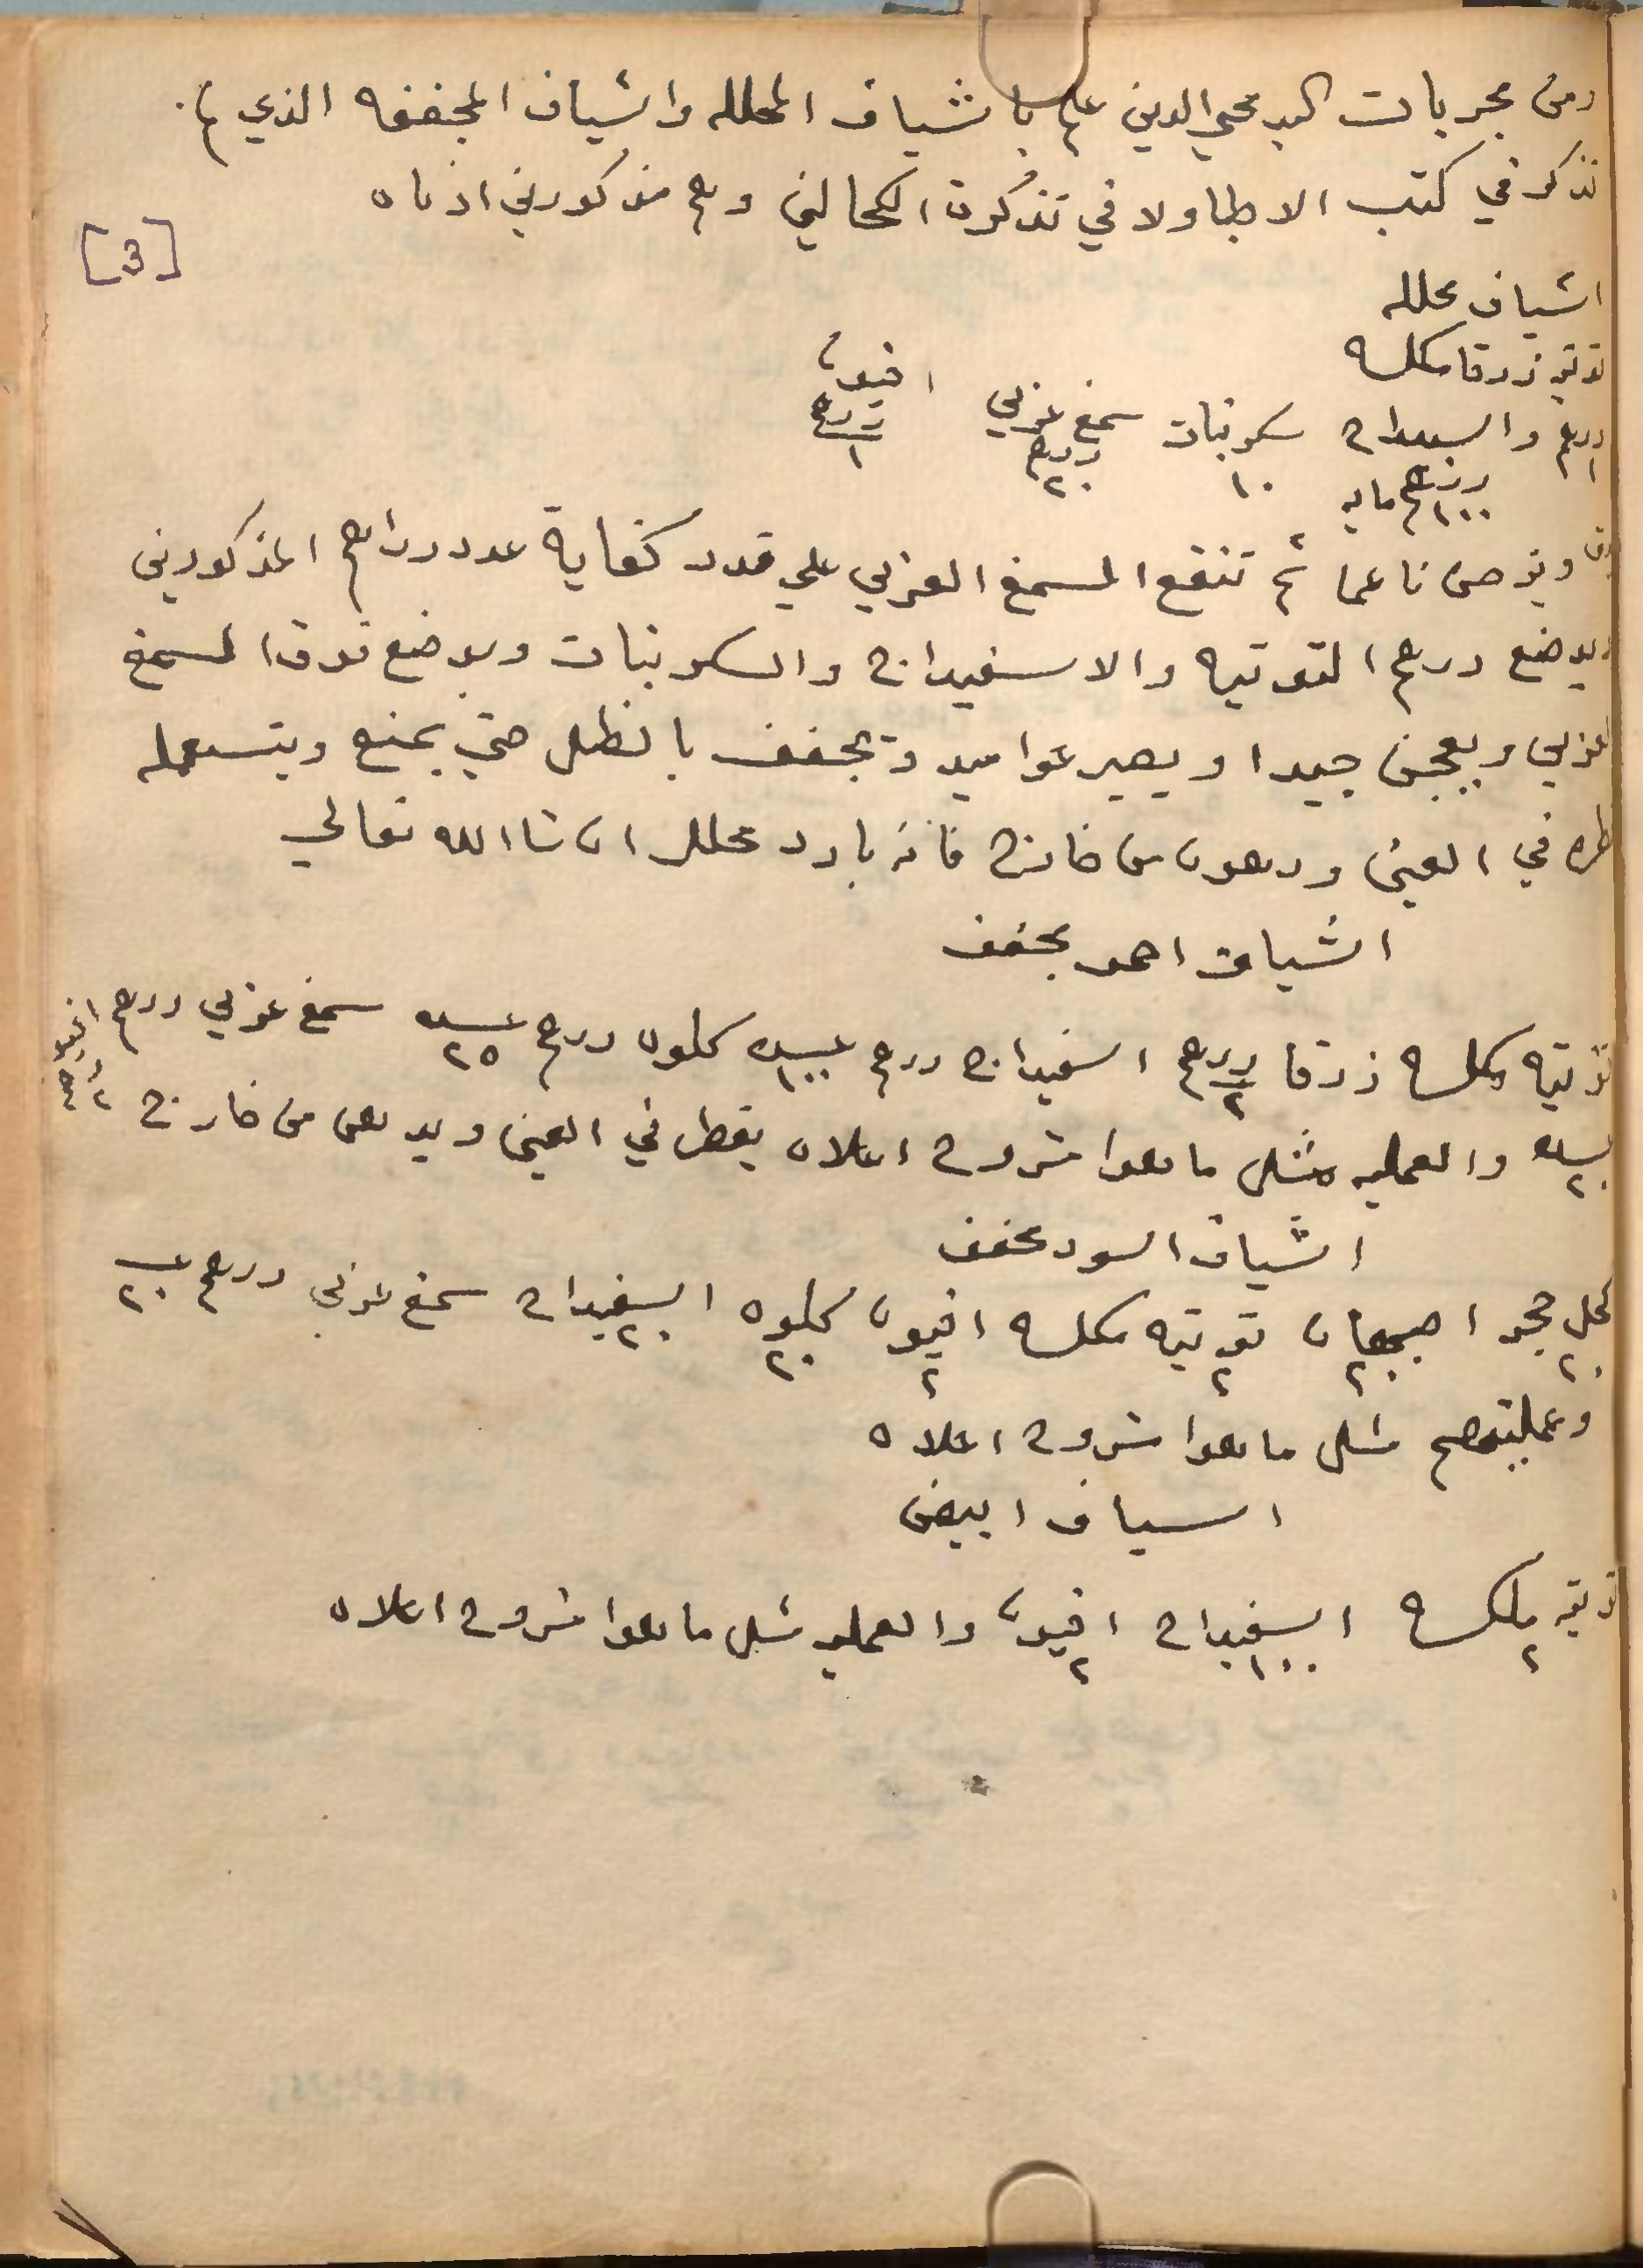 ومن مجربات السيد محي الدين علم باشياف المحلله واشياف المجففه الذي لم
تذكر في كتب الاطبا ولا في تذكرة الكحالين وهم مذكورين ادناه
[3]
اشياف محلله
توتيه زرقا مكلسه
درهم ١ والسيداج درهم ١٠٠ مايه سكر نبات ١٠ سمغ عربي درهم ٢٠ افيون درهم ١
ويوخن ناعما ثم تنقع السمغ العربي علي قدر كفاية عدد دراهم المذكورين
ويوضع درهم التوتيه والاسفيداج والسكر نبات ويوضع فوق السمغ
العربي ويعجن جيدا ويصير عواميد وتجفف بالظل حتي يمنع ويتسعمله
في العين ودهون من خارج فانه بارد محلل ان شا الله تعالي
اشياف احمر مجفف
توتيه مكلسه زرقا درهم ٢ اسفيداج درهم ١٠٠ كلون درهم ٢٥ سمغ عربي درهم افيون درهم ٢
٢٠ والعمليه مثل ما هوا مشروح اعلاه يقطر في العين ويدهن من خارج
اشياف اسود مجفف
كحل حجر اصبهان ٢٠ توتيه مكلسه ٢ افيون ٢ كلون ٢٠ اسفيداج ٢٠ سمغ عربي درهم ٢٠
وعمليتهم مثل ما هوا مشروح اعلاه
اسياف ابيض
توتيه ملكسه ٢ اسفيداج ١٠٠ افيون ٢ والعمليه مثل ما هوا مشروح اعلاه